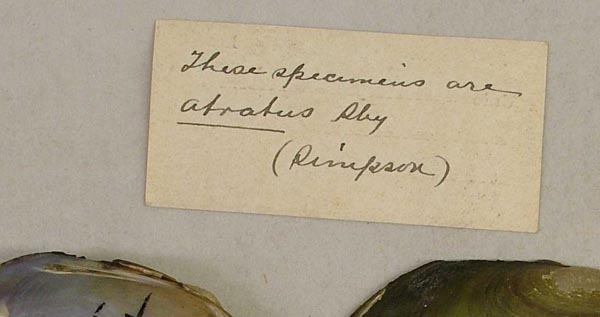 These specimens are
atratus Sby
(Simpson)